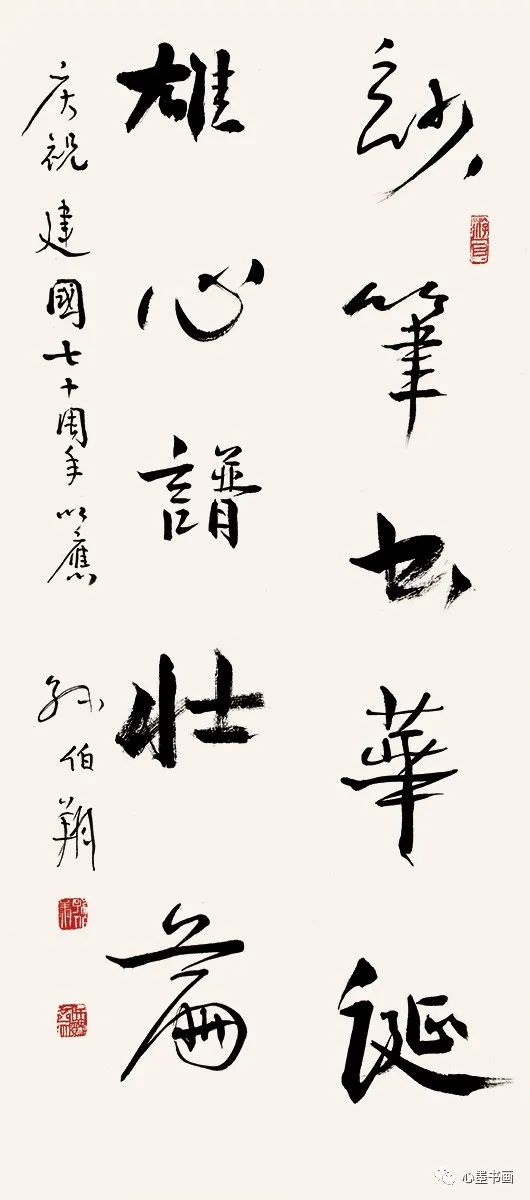 玅筆书華誕
雄心譜壮篇
庆祝建國七十周年以應
孙伯翔
心墨书画